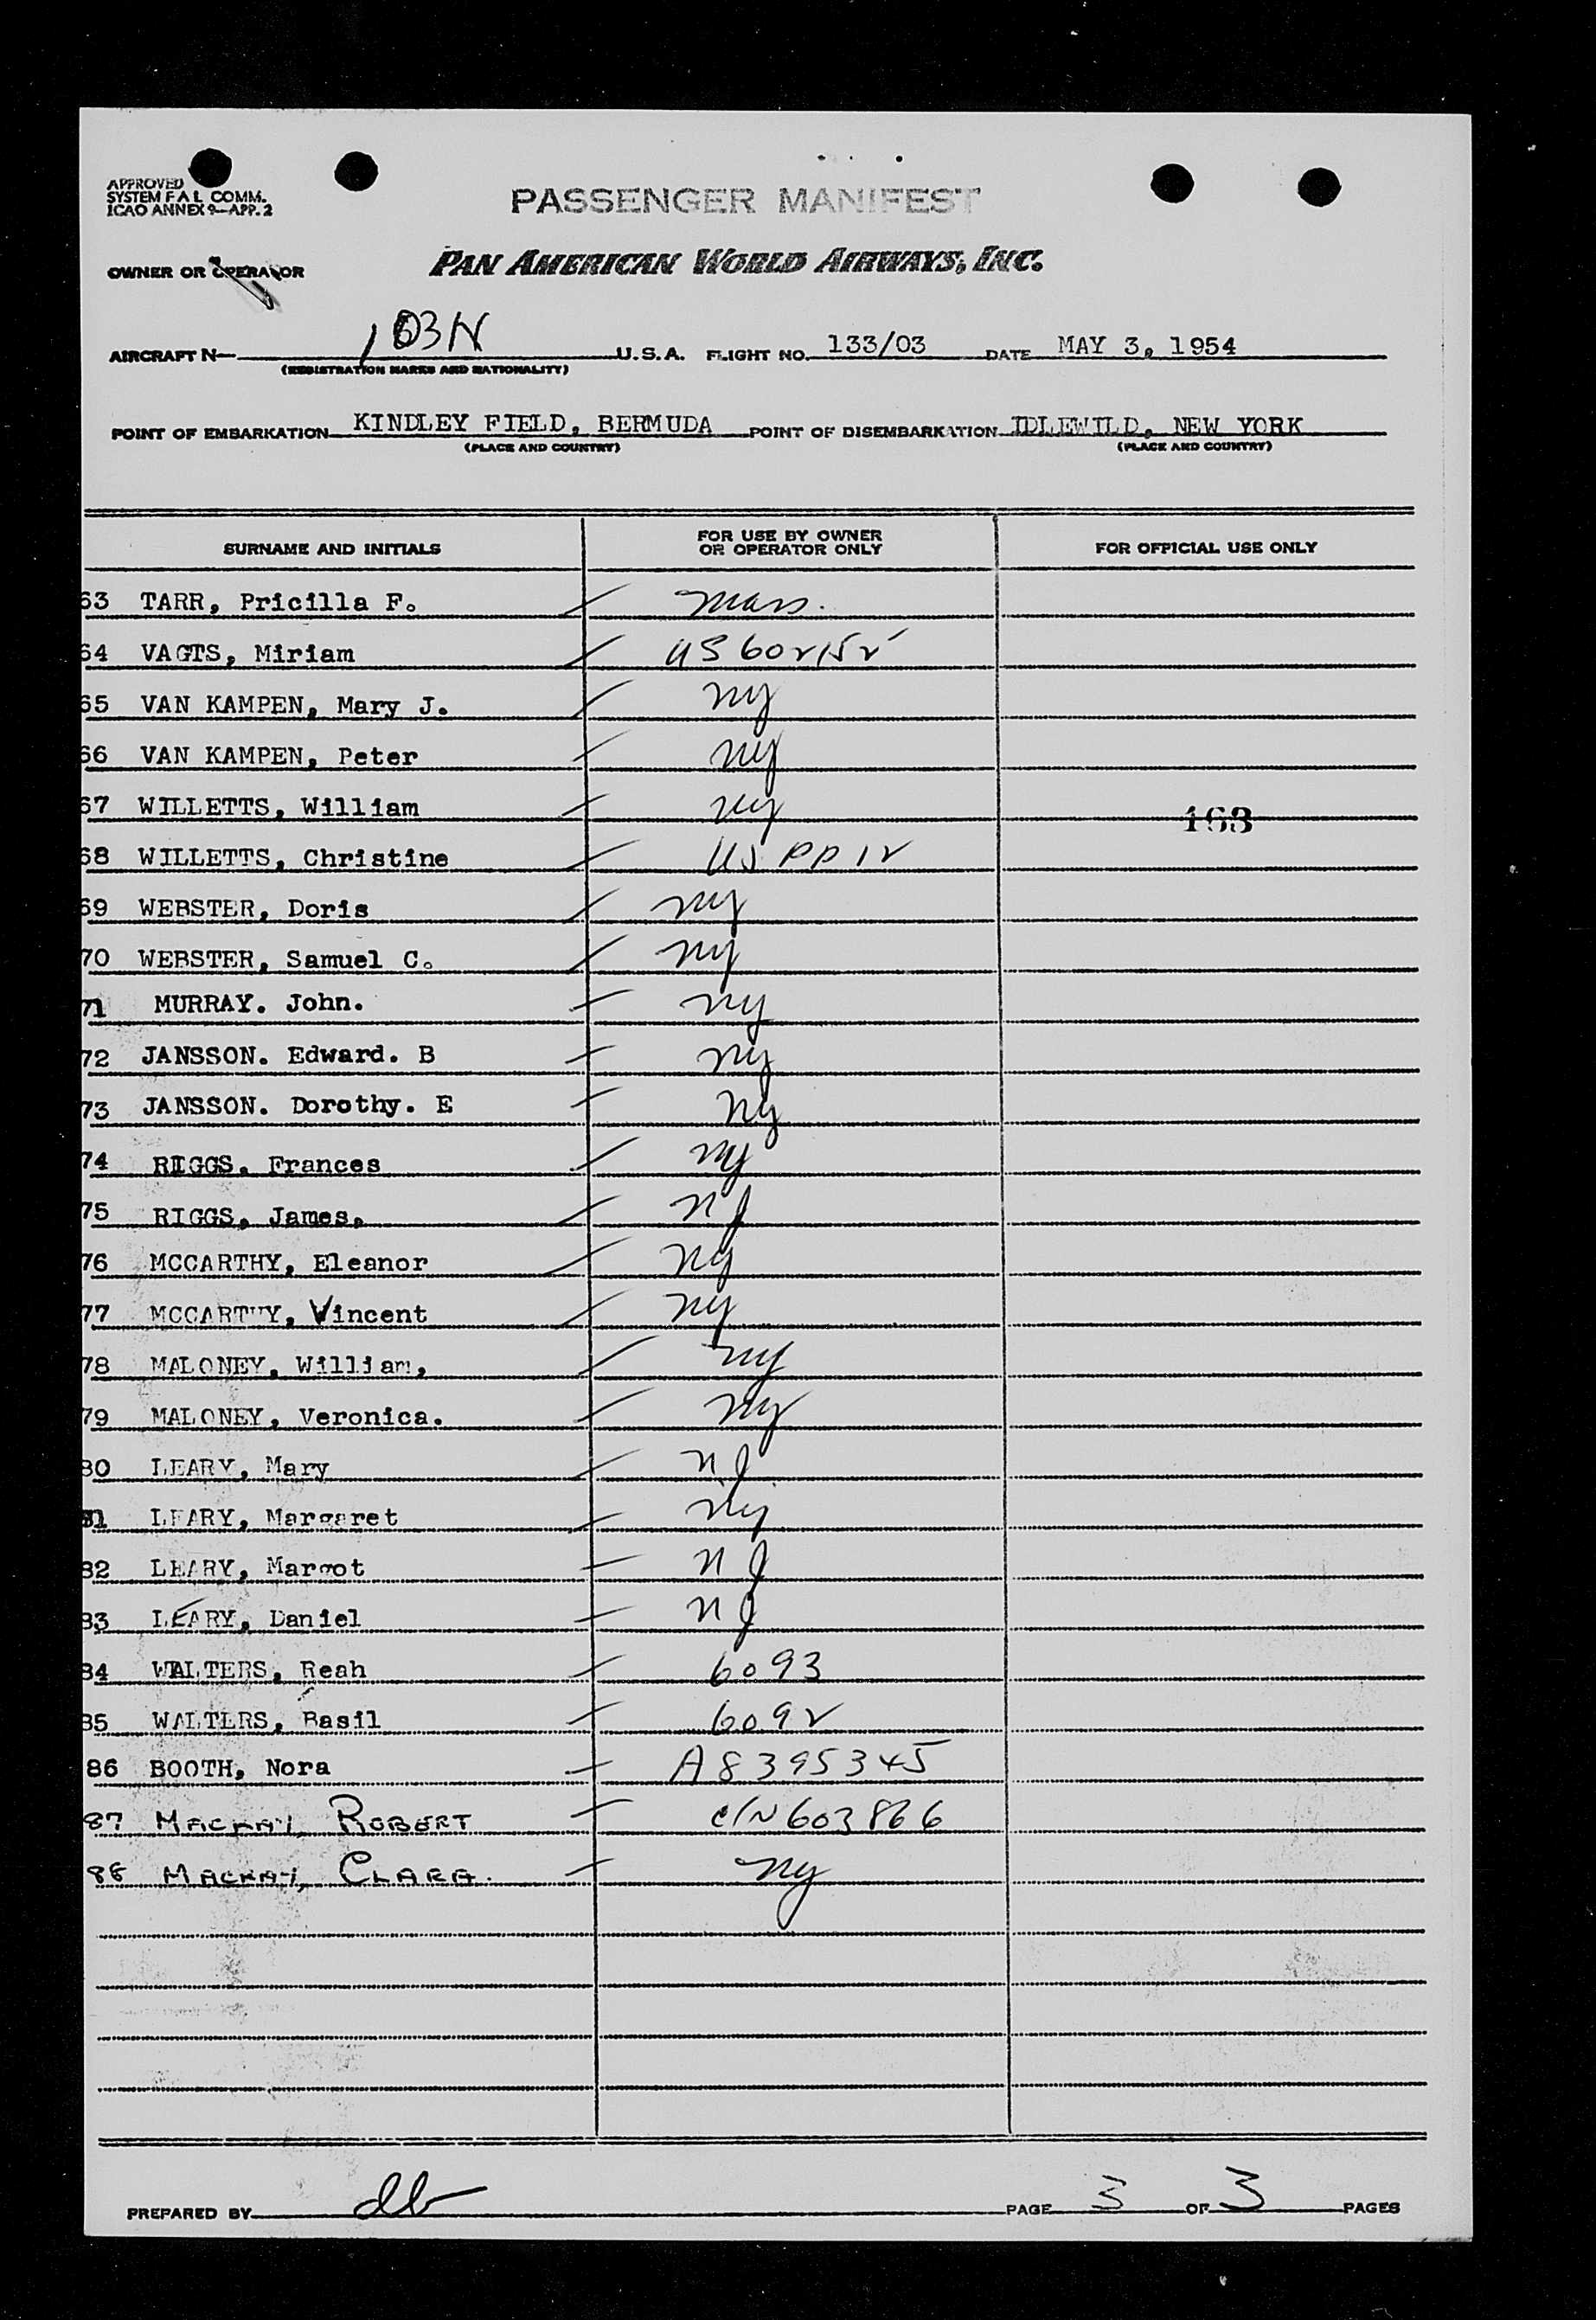 APPROVED
SYSTEM F A L COMM.
ICAO ANNEX 9—APP. 2
PASSENGER MANIFEST
OWNER OR OPERATOR PAN AMERICAN WORLD AIRWAYS, INC.
AIRCRAFT N— 103N U.S.A. FLIGHT NO. 133/03 DATE MAY 3, 1954
(REGISTRATION MARKS AND NATIONALITY)
POINT OF EMBARKATION KINDLEY FIELD, BERMUDA POINT OF DISEMBARKATION IDLEWILD, NEW YORK
(PLACE AND COUNTRY) (PLACE AND COUNTRY)
SURNAME AND INITIALS FOR USE BY OWNER OR OPERATOR ONLY FOR OFFICIAL USE ONLY
63 TARR, Pricilla F. Mass.
64 VAGTS, Miriam US 602152
65 VAN KAMPEN, Mary J. ny
66 VAN KAMPEN, Peter ny
67 WILLETTS, William ny 163
68 WILLETTS, Christine US PP 12
69 WEBSTER, Doris ny
70 WEBSTER, Samuel C. ny
71 MURRAY. John. ny
72 JANSSON. Edward. B ny
73 JANSSON. Dorothy. E ny
74 RIGGS. Frances ny
75 RIGGS, James. nJ
76 MCCARTHY, Eleanor ny
77 MCCARTHY, Vincent ny
78 MALONEY, William, ny
79 MALONEY, Veronica. ny
80 LEARY, Mary nJ
81 LEARY, Margaret nj
82 LEARY, Margot nJ
83 LEARY, Daniel nJ
84 WALTERS, Reah 6093
85 WALTERS, Basil 6092
86 BOOTH, Nora A8395345
87 MACKAY, ROBERT C/N 603866
88 MACKAY, CLARA. ny
PREPARED BY PAGE 3 OF 3 PAGES